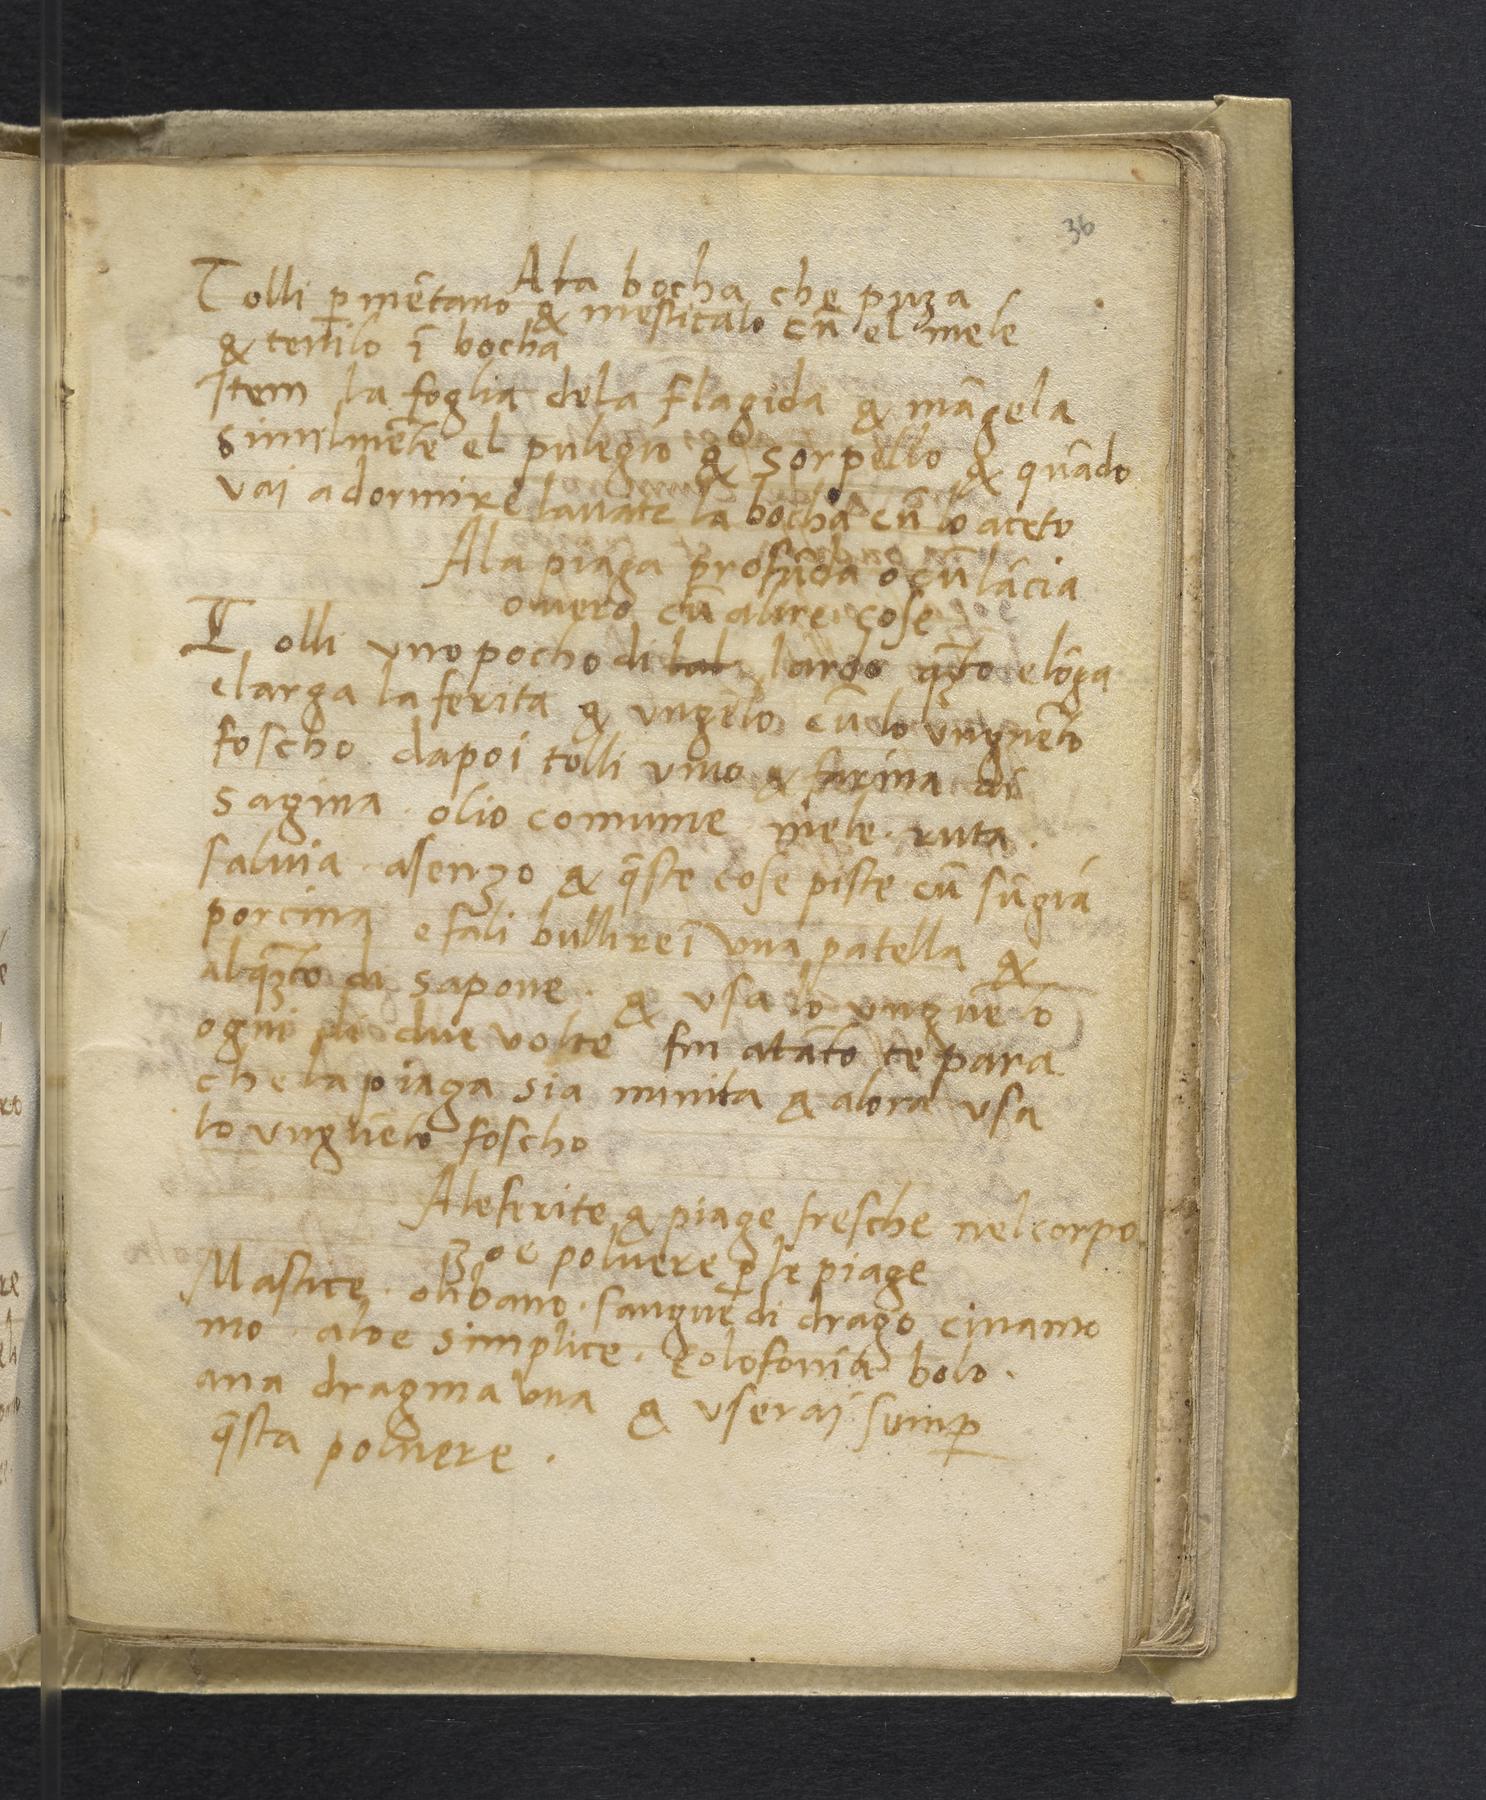 36
Ala bocha che puza
Tolli ꝑmẽtano & mesticalo cũ el mele
& tenilo ĩ bocha
Item la foglia dela Flagida & mãgela
similmẽte el pulegio & sorpello & quãdo
vai adormire lauate la bocha cũ lo aceto
Ala piaga profũda o cũ lãcia
ouero cũ altre cose
Tolli vno pocho di lardo qᷓto e lõga
e larga la ferita & vngelo cũ lo vnguẽto
foscho dapoi tolli vino & farina di
sagina · olio comune · mele · ruta ·
saluia · asenzo & q̃ste cose piste cũ sũgia
porcina e fali bullire ĩ vna patella &
alqᷓto di sapone · & vsa lo vnguẽto
ogni di due volte fin atãto te para
che la piaga sia munita & alora vsa
lo vnguẽto foscho
Ale ferite & piage fresche nel corpo
zoe poluere ꝑ le piage
Mastice · olibano · sangue di drago cinamo
mo · aloe simplice · colofonia bolo ·
ana dragma vna & vserai semꝑ
q̃sta poluere ·